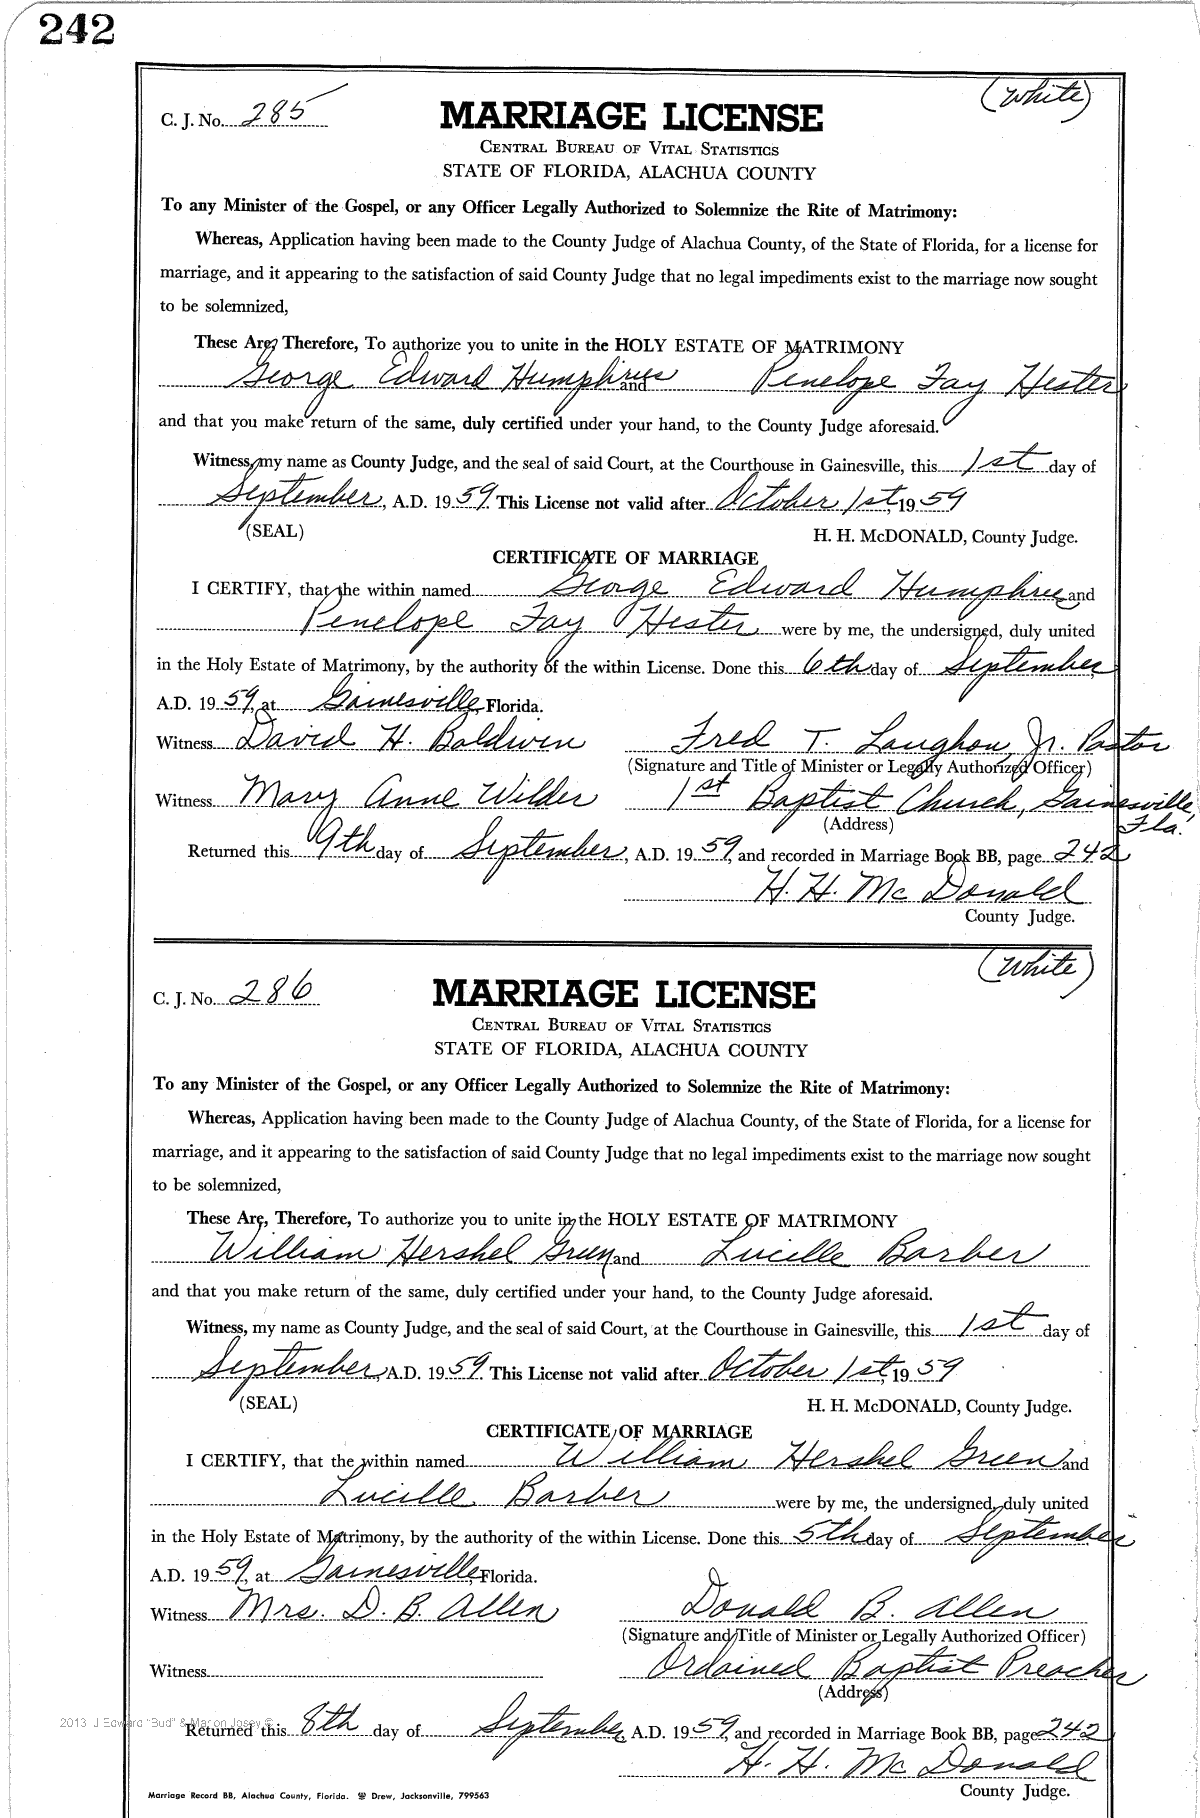 242
(White)
C. J. No. 285
MARRIAGE LICENSE
CENTRAL BUREAU OF VITAL STATISTICS
STATE OF FLORIDA, ALACHUA COUNTY
To any Minister of the Gospel, or any Officer Legally Authorized to Solemnize the Rite of Matrimony:
Whereas, Application having been made to the County Judge of Alachua County, of the State of Florida, for a license for
marriage, and it appearing to the satisfaction of said County Judge that no legal impediments exist to the marriage now sought
to be solemnized,
These Are, Therefore, To authorize you to unite in the HOLY ESTATE OF MATRIMONY
George Edward Humphries and Penelope Fay Hester
and that you make return of the same, duly certified under your hand, to the County Judge aforesaid.
Witness, my name as County Judge, and the seal of said Court, at the Courthouse in Gainesville, this 1st day of
September, A.D. 1959. This License not valid after October 1st, 1959
(SEAL) H. H. McDONALD, County Judge.
CERTIFICATE OF MARRIAGE
I CERTIFY, that the within named George Edward Humphries and
Penelope Fay Hester were by me, the undersigned, duly united
in the Holy Estate of Matrimony, by the authority of the within License. Done this 6th day of September,
A.D. 1959, at Gainesville, Florida.
Witness David H. Baldwin Fred T. Laughon, Jr. Pastor
(Signature and Title of Minister or Legally Authorized Officer)
Witness Mary Anne Wilder 1st Baptist Church, Gainesville,
Fla.
(Address)
Returned this 9th day of September, A.D. 1959, and recorded in Marriage Book BB, page 242
H. H. McDonald
County Judge.
(White)
C. J. No. 286
MARRIAGE LICENSE
CENTRAL BUREAU OF VITAL STATISTICS
STATE OF FLORIDA, ALACHUA COUNTY
To any Minister of the Gospel, or any Officer Legally Authorized to Solemnize the Rite of Matrimony:
Whereas, Application having been made to the County Judge of Alachua County, of the State of Florida, for a license for
marriage, and it appearing to the satisfaction of said County Judge that no legal impediments exist to the marriage now sought
to be solemnized,
These Are, Therefore, To authorize you to unite in the HOLY ESTATE OF MATRIMONY
William Hershel Green and Lucille Barber
and that you make return of the same, duly certified under your hand, to the County Judge aforesaid.
Witness, my name as County Judge, and the seal of said Court, at the Courthouse in Gainesville, this 1st day of
September, A.D. 1959. This License not valid after October 1st, 1959
(SEAL) H. H. McDONALD, County Judge.
CERTIFICATE OF MARRIAGE
I CERTIFY, that the within named William Hershel Green and
Lucille Barber were by me, the undersigned, duly united
in the Holy Estate of Matrimony, by the authority of the within License. Done this 5th day of September
A.D. 1959, at Gainesville, Florida.
Witness Mrs. D. B. Allen Donald B. Allen
(Signature and Title of Minister or Legally Authorized Officer)
Witness Ordained Baptist Preacher
(Address)
2013 J Edward "Bud" & Marion Josey ©
Returned this 8th day of September, A.D. 1959, and recorded in Marriage Book BB, page 242
H. H. McDonald
County Judge.
Marriage Record BB, Alachua County, Florida. Drew, Jacksonville, 799563